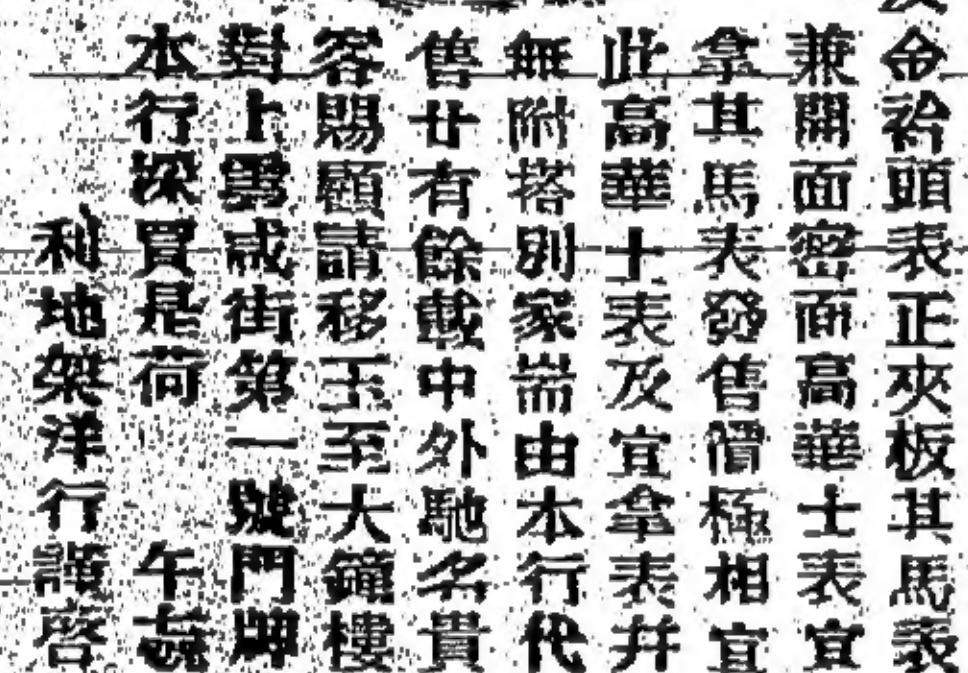 金袷頭表正夾板其馬表
兼開面密面高華士表宜
拿其馬表發售價極相宜
此高華士表及宜拿表并
無附搭別家耑由本行代
售廿有餘載中外馳名貴
客賜顧請移玉至大鐘樓
對上雲咸街第一號門牌
本行深買是荷 午誌
利地架洋行謹啓